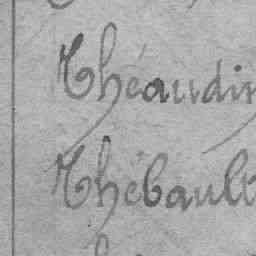 Théaudin
Thébault